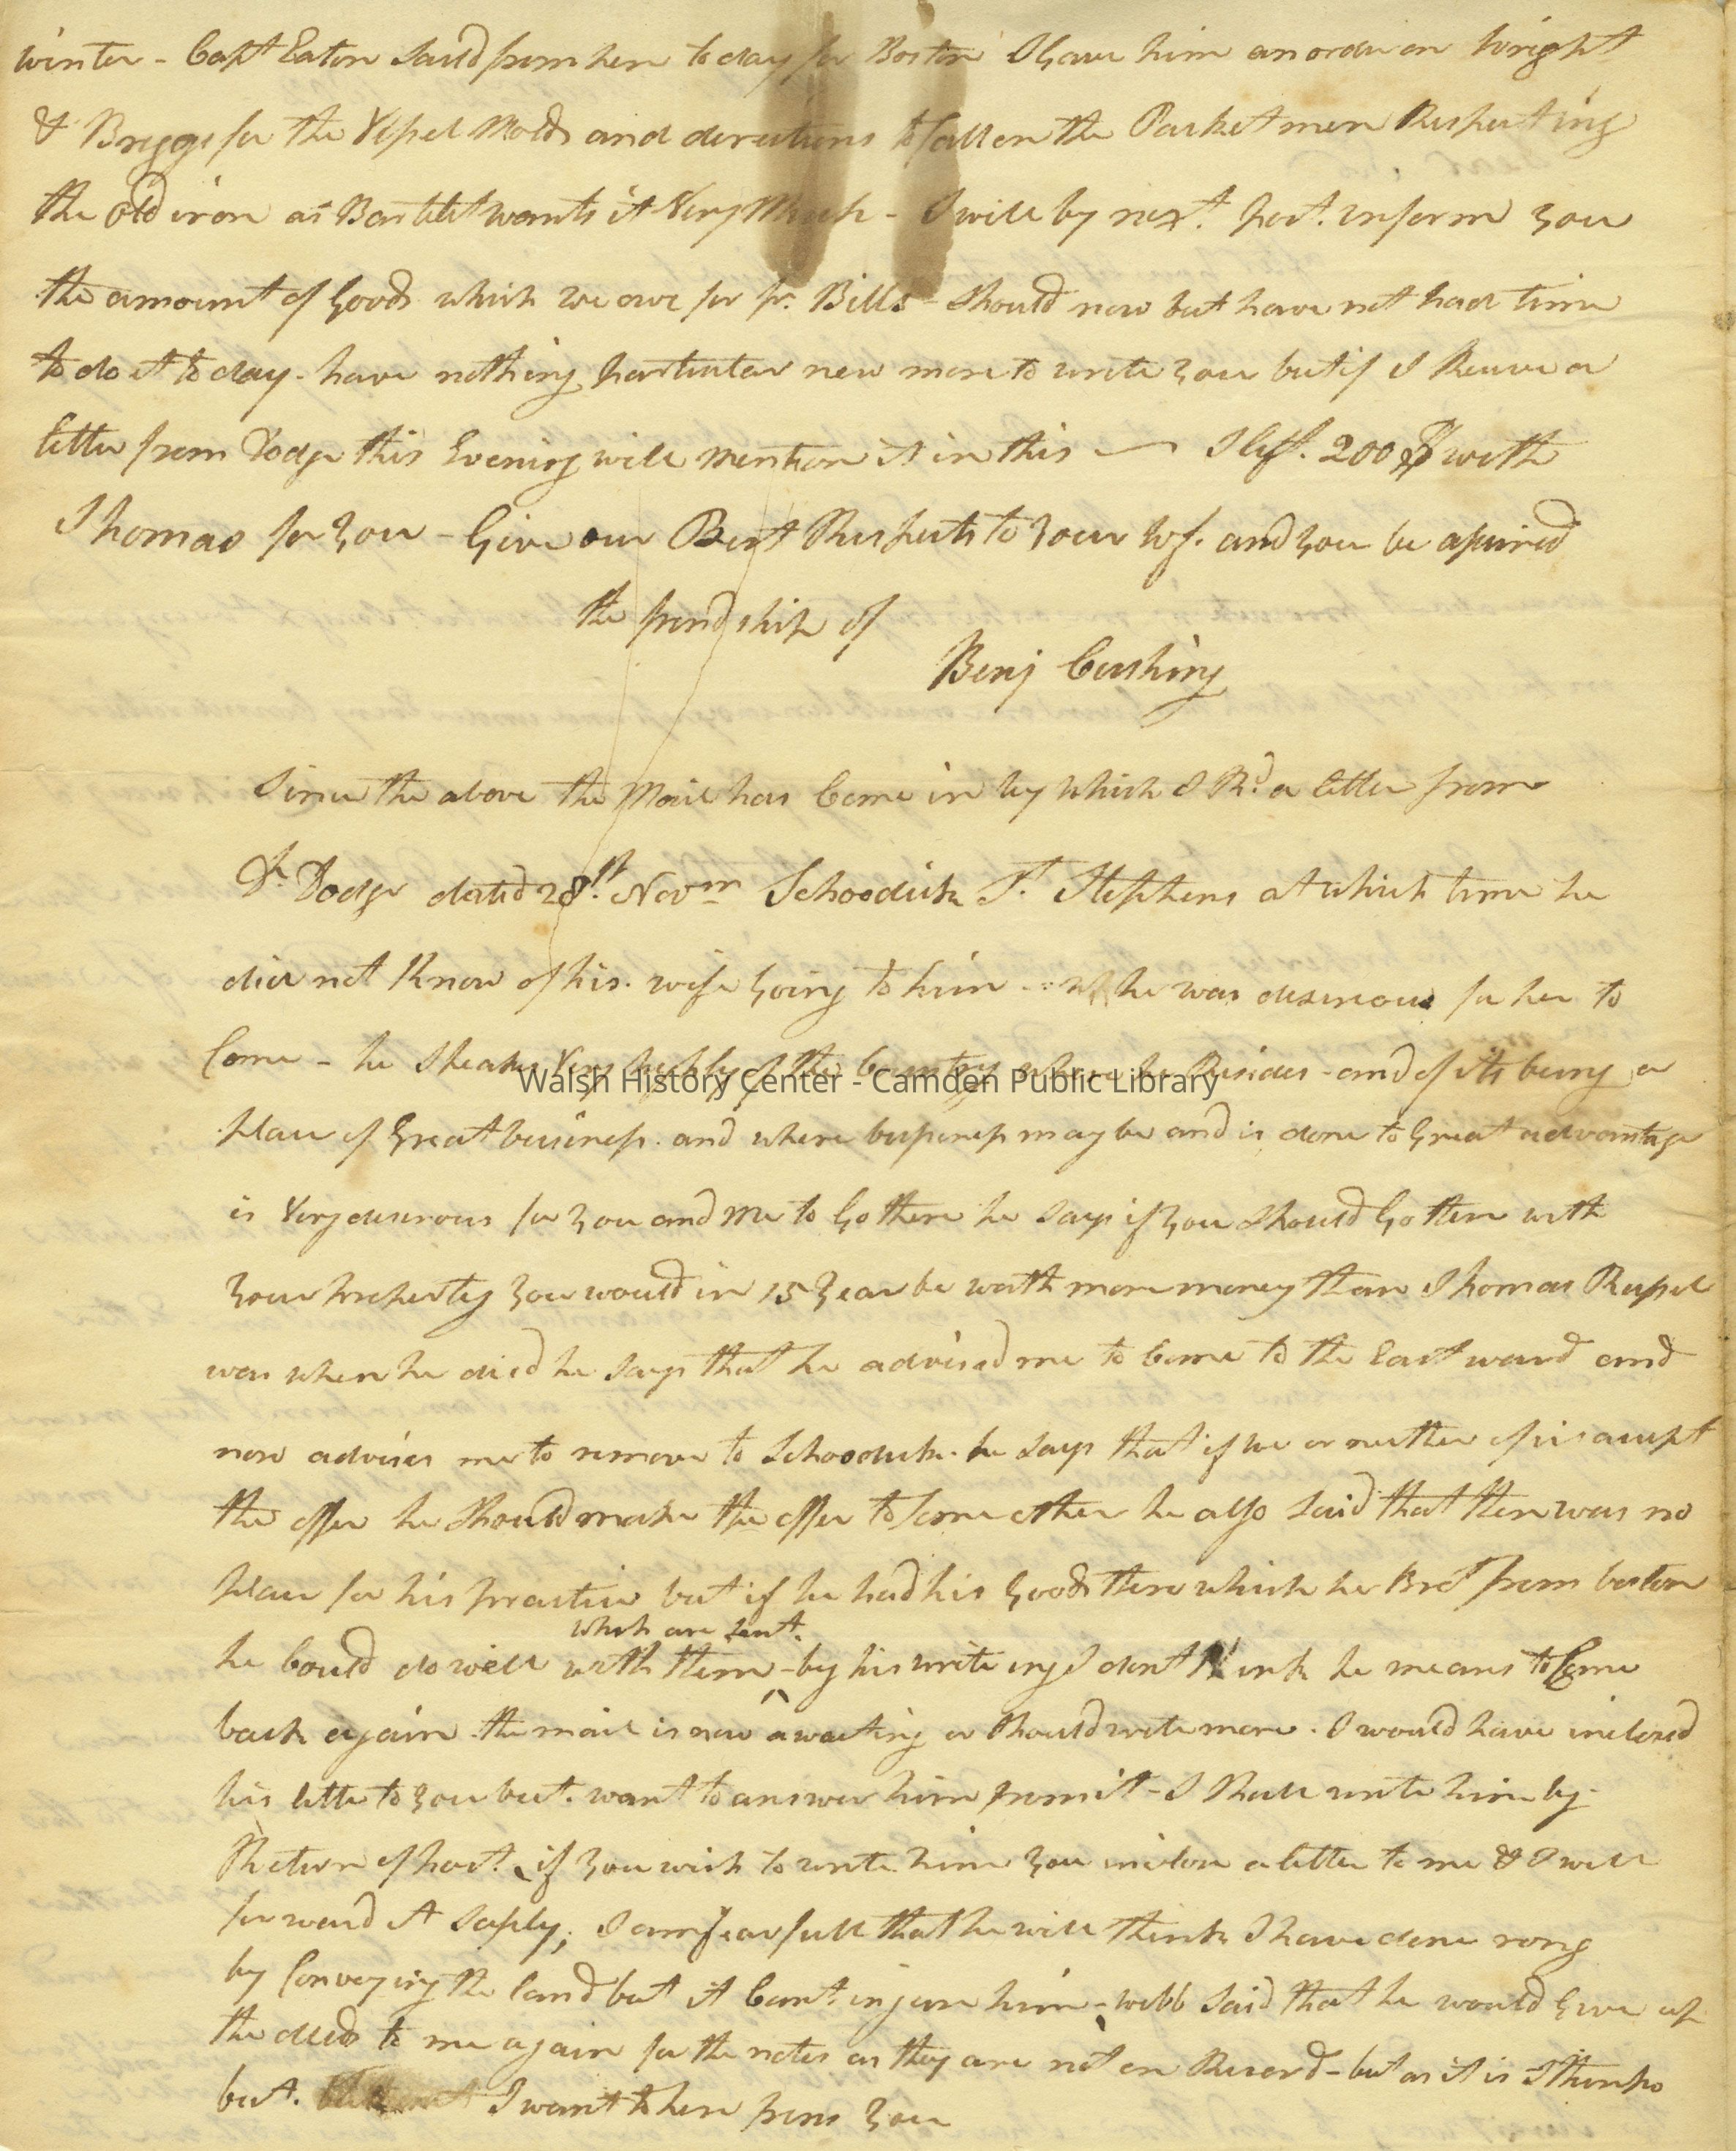 winter - Capt Eaton Saild from here to day for Boston I Gave him an order on Wright
& Briggs for the Vessel Molds and derections to Call on the Packet men Respecting
the old iron as Bartlet wants it Very Much - I will by next. post. inform you
the amount of Goods which we owe for pr. Bills - Should now but have not had time
to do it to day - have nothing particular new more to write you but if I Receive a
letter from Dodge this Evening will mention it in this — I left. 200 $ with
Thomas for you - Give our Best Respects to your wf. and you be asured
the frendship of
Benj Cushing
Since the above the Mail has Come in by which I Rd a letter from
Dr Dodge dated 28th. Novm Schoodick St. Stephens at which time he
did not Know of his. wife Going to him - he was desireous for her to
Come - he Speakes Very highly of the Country where he Resides - and of its being a
place of Great business. and where business may be and is done to Great advantage
is Very desirous for you and me to Go there he Says if you Should Go there with
your property you would in 15 year be worth more money than Thomas Russel
was when he died he Says that he advised me to Come to the Eastward and
now advises me to remove to Schoodick. he Says that if we or neither of us accept
the offer he Should make the offer to Some other he also Said that there was no
place for his practice but if he had his Goods there which he Bro't from boston
which are sent.
he Could do well with them - by his write ing I dont think he means to Come
back again. the mail is now a waiting or Should write more. I would have inclosed
his letter to you but. want to answer him from it - I Shall write him by
Return of post. if you wish to write him you inclose a letter to me & I will
forward it Safely; I am fearfull that he will think I have done rong
by Conveying the land but it Cant. injure him - webb Said that he would Give up
the deeds to me again for the notes as they are not on Record - but as it is I think
but. I want to here from you
Walsh History Center - Camden Public Library